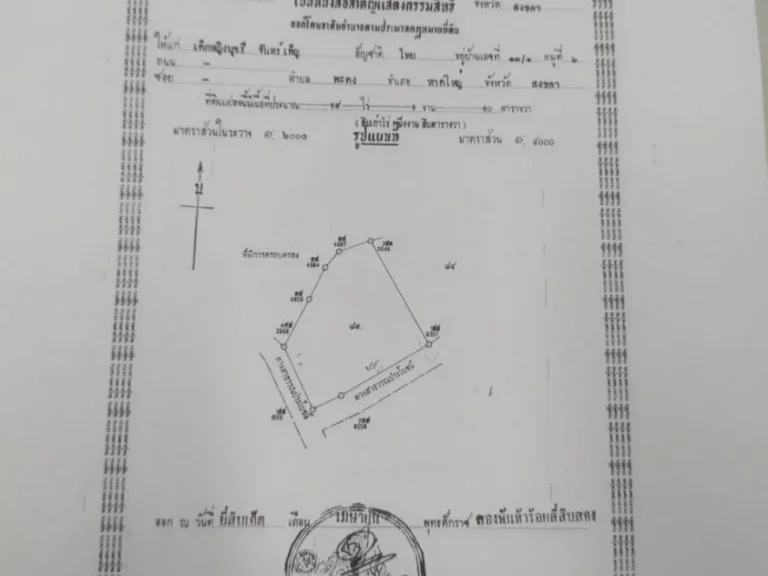 โฉนดที่ดิน เป็นหนังสือสำคัญแสดงกรรมสิทธิ์ จังหวัด สงขลา
ออกโดยอาศัยอำนาจตามประมวลกฎหมายที่ดิน
ให้แก่ เด็กหญิงนุชรี จันทร์เพ็ญ สัญชาติ ไทย อยู่บ้านเลขที่ ๑๓/๑ หมู่ที่ ๖
ถนน -
ซอย - ตำบล พะตง อำเภอ หาดใหญ่ จังหวัด สงขลา
ที่ดินแปลงนี้มีเนื้อที่ประมาณ ๑๙ ไร่ ๑ งาน ๑๐ ตารางวา
(สิบเก้าไร่ หนึ่งงาน สิบตารางวา)
มาตราส่วนในระวาง ๑: ๒๐๐๐ รูปแผนที่ มาตราส่วน ๑: ๔๐๐๐
น
ที่มีการครอบครอง
๘๔
๘๓
ทางสาธารณประโยชน์
ทางสาธารณประโยชน์
ออก ณ วันที่ ยี่สิบเอ็ด เดือน เมษายน พุทธศักราช สองพันห้าร้อยสี่สิบสอง